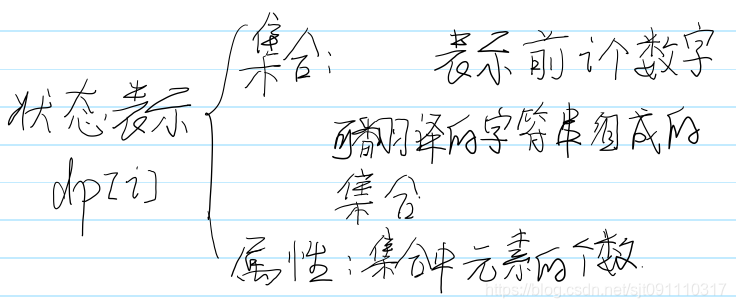 集合: 表示前i个数字
状态表示
可翻译的字符串组成的
dp[i]
集合
属性:集合中元素的个数.
https://blog.csdn.net/sjt091110317